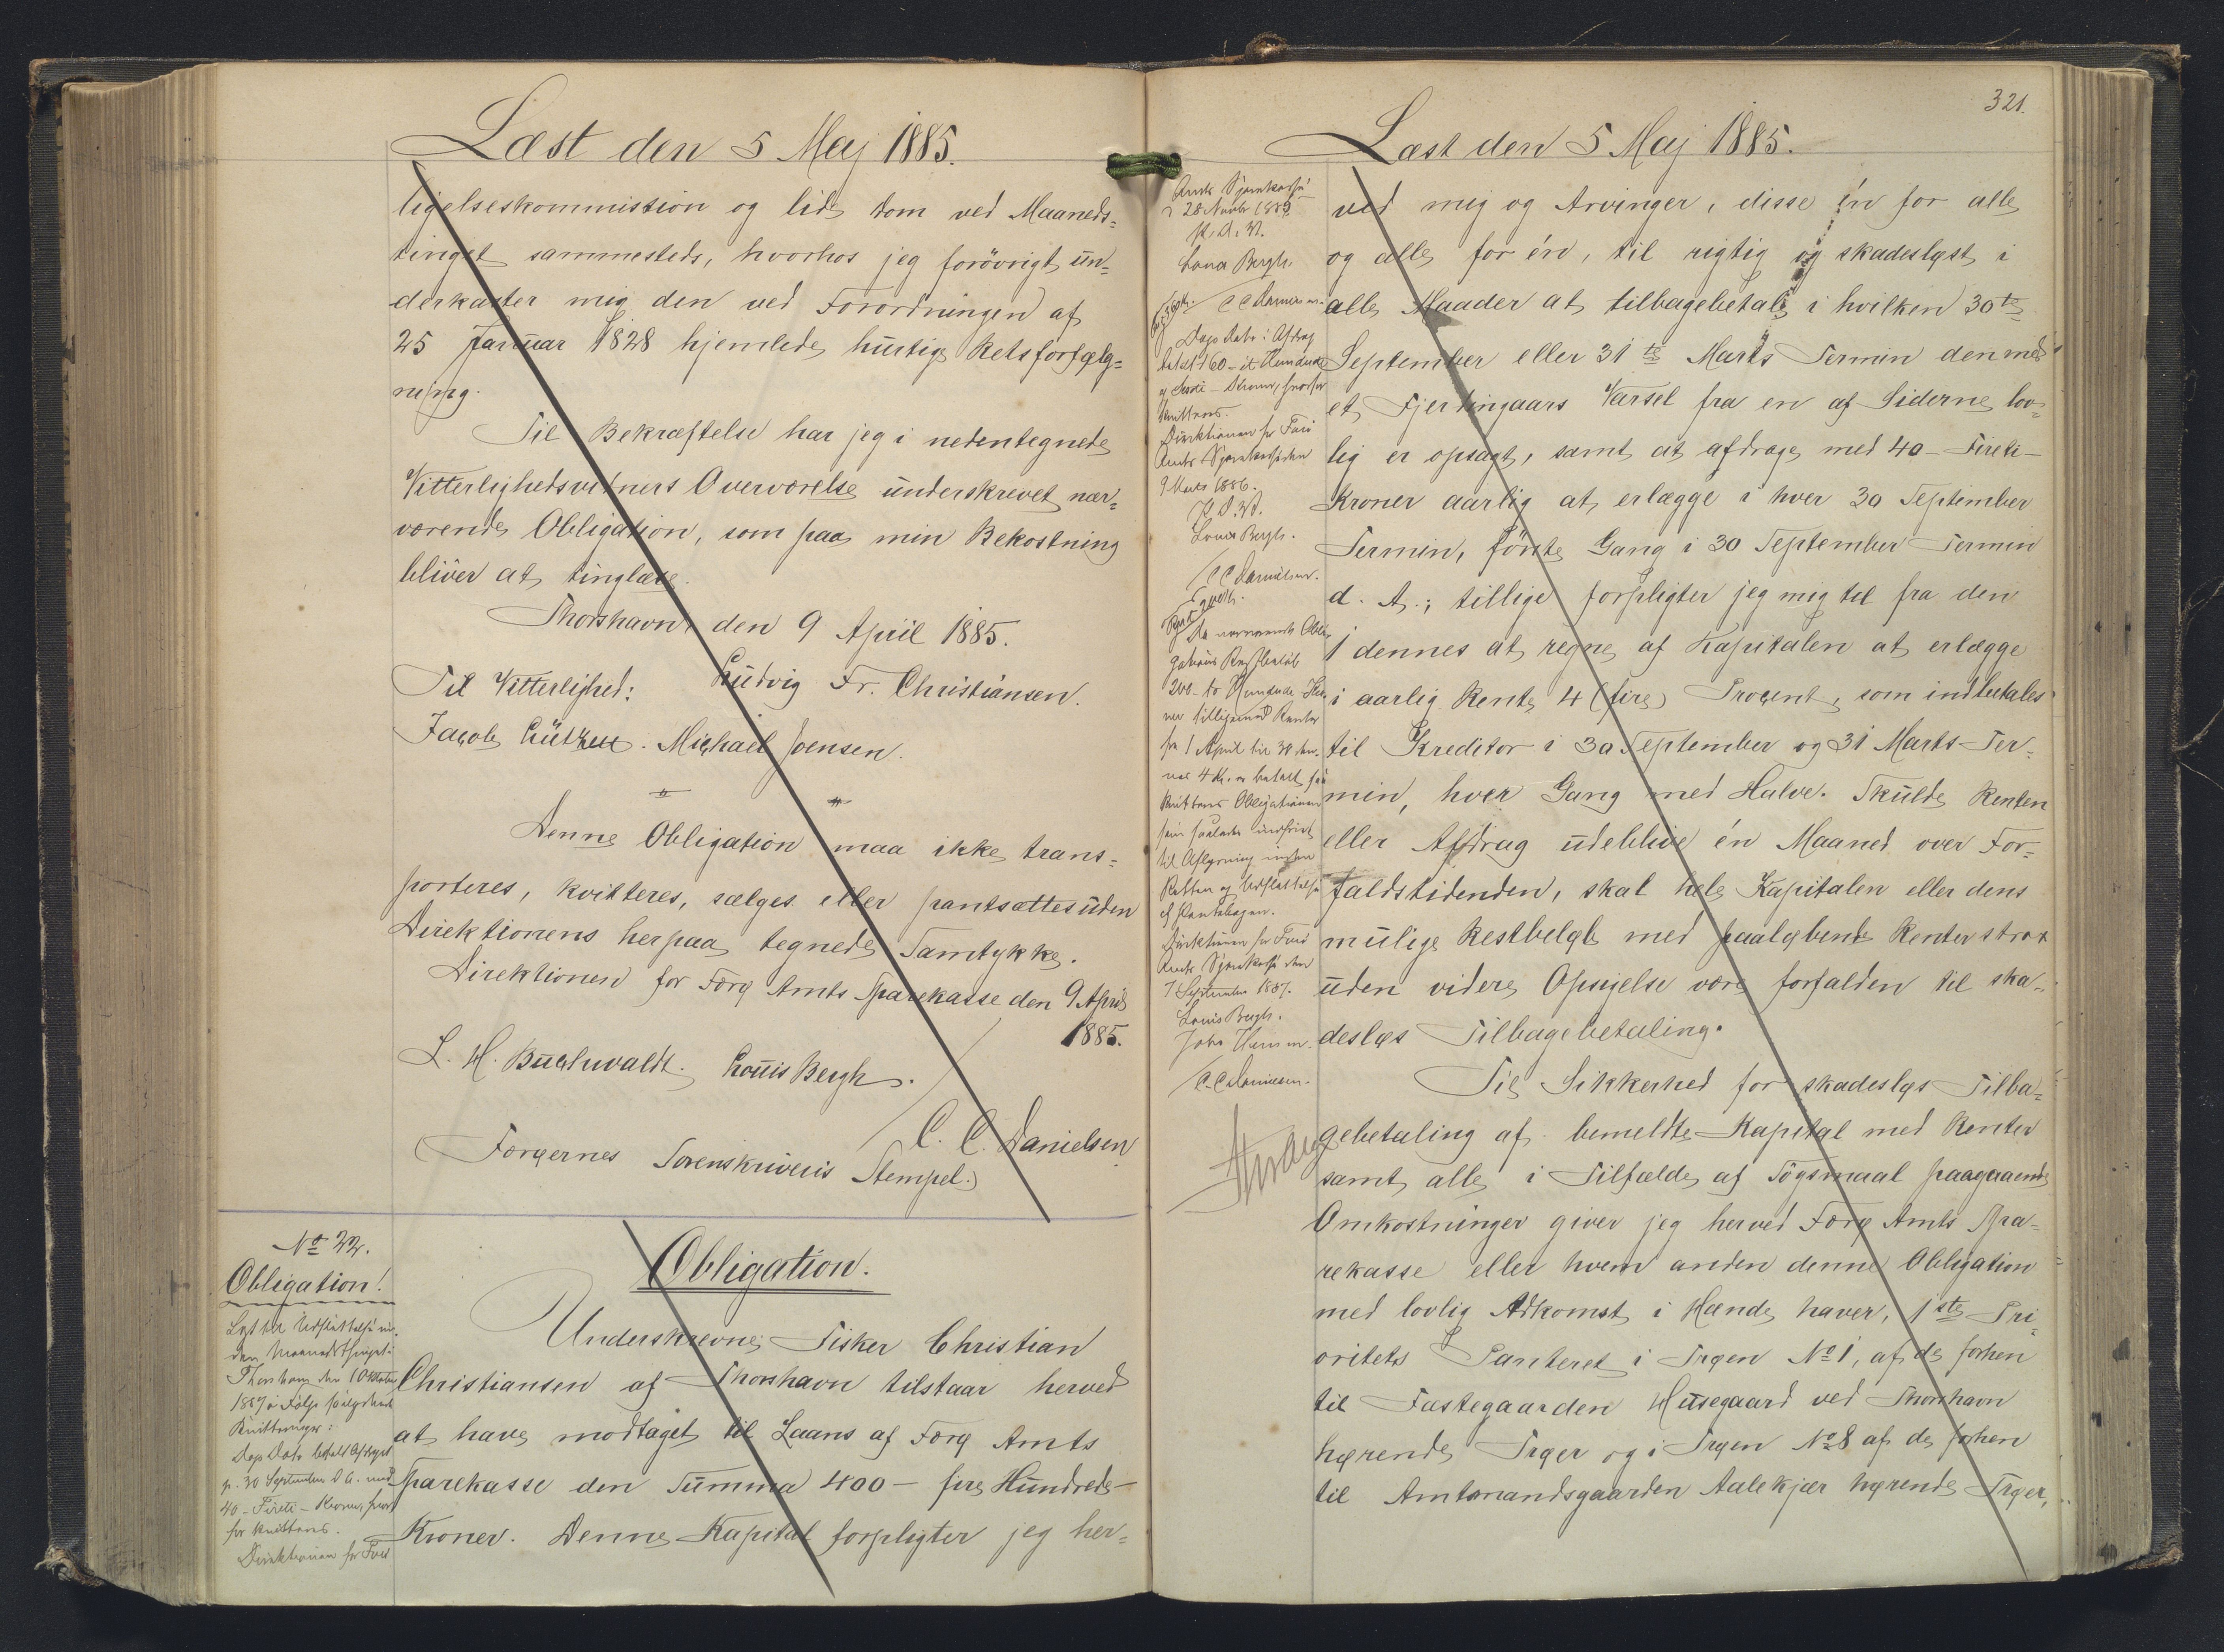 Læst den 5 Maj 1885.
ligelseskommission og lide Dom ved Maaneds=
tinget sammesteds, hvorhos jeg forövrigt un=
derkaster mig den ved Forordningen af
25 Januar 1828 hjemlede hurtige Retsforfølg=
ning.
Til Bekræftelse har jeg i nedentegnede
Vitterlighedsvidners Overværelse underskrevet nær=
værende Obligation, som paa min Bekostning
bliver at tinglæse.
Thorshavn den 9 April 1885.
Til Vitterlighed: Ludvig Fr. Christiansen.
Jacob Lützen. Michael Joensen.
Denne Obligation maa ikke trans=
porteres, kvitteres, sælges eller pantsættes uden
Direktionens herpaa tegnede Samtykke.
Direktionen for Færø Amts Sparekasse den 9 April
1885.
L. H. Buchwaldt. Louis Bergh.
/ C. C. Danielsen
(Færøernes Sorenskriveris Stempel.)
No 22.
Obligation!
Lyst til Udslettelse in-
den Maanedsthinget i
Thorshavn den 1 Oktober
1887 i Følge saalydende
Kvitteringer:
Dags Dato betalt Afdraget
p. 30 September D. A. med
40 - Fireti - Kroner, hvor
for kvitteres.
Direktionen for Færø
Obligation.
Underskrevne Fisker Christian
Christiansen af Thorshavn tilstaar herved
at have modtaget til Laans af Færø Amts
Sparekasse den Summa 400 - fire Hundrede -
Kroner. Denne Kapital forpligter jeg her=
321.
Læst den 5 Maj 1885.
Amts Sparekasse
28 Novbr 1885
P. D. V.
Louis Bergh.
/ C C Danielsen.
Dags Dato i Afdrag
betalt 160 - et Hundrede
og Sexti - Kroner, hvorfor
kvitteres.
Direktionen for Færø
Amts Sparekasse den
9 Marts 1886.
P. D. V.
Louis Bergh.
/ C C Danielsen.
At nærværende Obli-
gations Restbeløb
200 - to Hundrede Kro-
ner tilligemed Renter
fra 1 April til 30 Au-
4 Kr. er betalt
kvitteres Obligationen
som saaledes indfriet
til Aflysning inden
Retten og Udslettelse
af Pantebogen.
Direktionen for Færø
Amts Sparekasse den
7 September 1887.
Louis Bergh.
/ C. C. Danielsen.
ved mig og Arvinger, disse én for alle
og alle for én, til rigtig og skadesløst i
alle Maader at tilbagebetale i hvilken 30te
September eller 31te Marts Termin den med
et Fjerdingaars Varsel fra en af Siderne lov=
lig er opsagt, samt at afdrage med 40 - Fireti -
Kroner aarlig at erlægge i hver 30 September
Termin, første Gang i 30 September Termin
d. A.; tillige forpligter jeg mig til fra den
1 dennes at regne af Kapitalen at erlægge
i aarlig Rente 4 (fire) Procent, som indbetales
til Kreditor i 30 September og 31 Marts Ter=
min, hver Gang med Halve. Skulde Renten
eller Afdrag udeblive én Maaned over For=
faldstidenden, skal hele Kapitalen eller dens
mulige Restbeløb med paaløbende Renter strax
uden videre Opsigelse være forfalden til ska=
desløs Tilbagebetaling.
Til Sikkerhed for skadesløs Tilba=
gebetaling af bemeldte Kapital med Renter
samt alle i Tilfælde af Søgsmaal paagaaende
Omkostninger giver jeg herved Færø Amts Spa=
rekasse eller hvem anden denne Obligation
med lovlig Adkomst i Hænde haver, 1ste Pri=
oritets Panteret i Trøen No 1, af de forhen
til Fæstegaarden Husegaard ved Thorshavn
hørende Trøer og i Trøen No 8 af de forhen
til Amtmandsgaarden Aalekjær hørende Trøer,